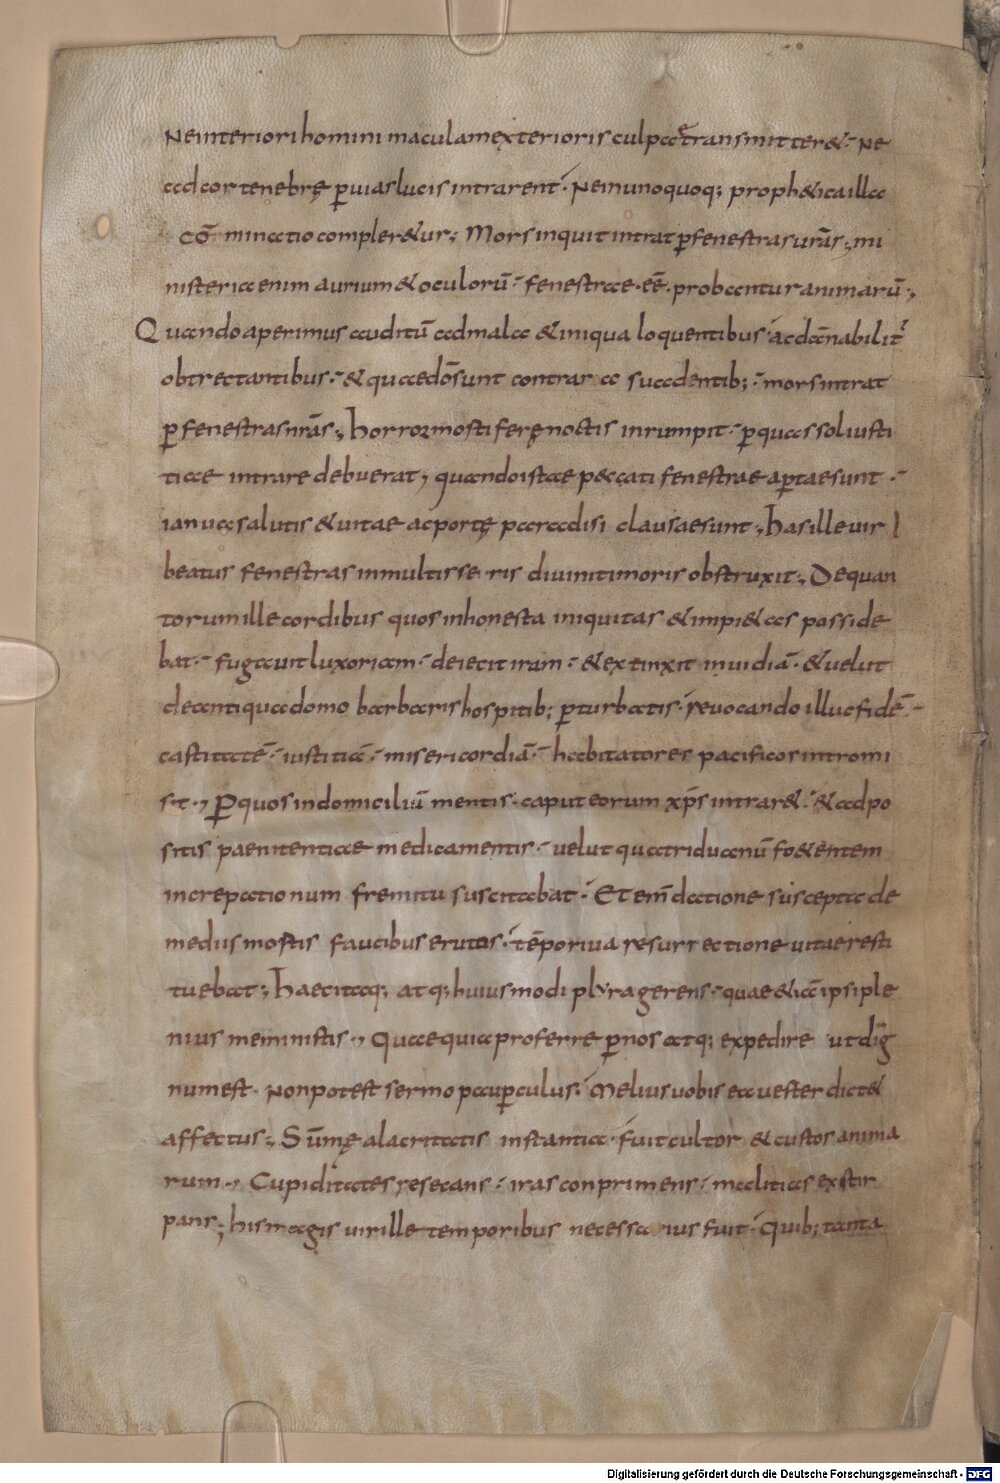 Ne interiori homini maculam exterioris culpa transmitter&. Ne
ad cor tenebrę p uias lucis intrarent. Ne in uno quoq; proph&ica illa
cō minatio compler&ur; Mors inquit intrat p fenestras urās; mi
nisteria enim aurium & oculorū. fenestrae. eē. probantur animarū;
Quando aperimus auditū ad mala & iniqua loquentibus. ac dānabilit
obtrectantibus. & quae dōsunt contrar a suadentib; mors intrat
p fenestras nrās; horror mostiferę noctis inrumpit. p quas sol iusti
tiae intrare debuerat; quando istae peccati fenestrae aptae sunt.
ianua salutis & uitae ac portę paradisi clausae sunt; has ille uir
beatus fenestras in multis se ris diuini timoris obstruxit; De quan
torum ille cordibus quos inhonesta iniquitas & impi&as posside
bat. fugauit luxoriam. deiecit iram. & extinxit inuidiā. & uelut
de antiqua domo barbaris hospitib; pturbatis. reuocando illuc fidē.
castitatē. iustitiā. misericordiā. habitatores pacificos intromi
s t; P quos in domiciliū mentis. caput eorum xp̄s intrar&. & adpo
sitis paenitentiae medicamentis. uelut quatriduanū fo&entem
increpationum fremitu suscitabat. Et emdatione suscepta de
mediis mostis faucibus erutos. tēporiua resurrectione uitae resti
tuebat; haec itaq; atq; huiusmodi plura gerens. quae &iā ipsi ple
nius meministis; Quae quia proferre p nos atq; expedire ut dig
num est. Non potest sermo pauperculus. Melius uobis ea uester dict&
affectus; Sūmę alacritatis instantia. fuit cultor & custos anima
rum; Cupiditates resecans. iras conprimens. malitias exstir
pans; his magis uir ille temporibus necessa rius fuit. Quib; tanta
Digitalisierung gefördert durch die Deutsche Forschungsgemeinschaft - DFG